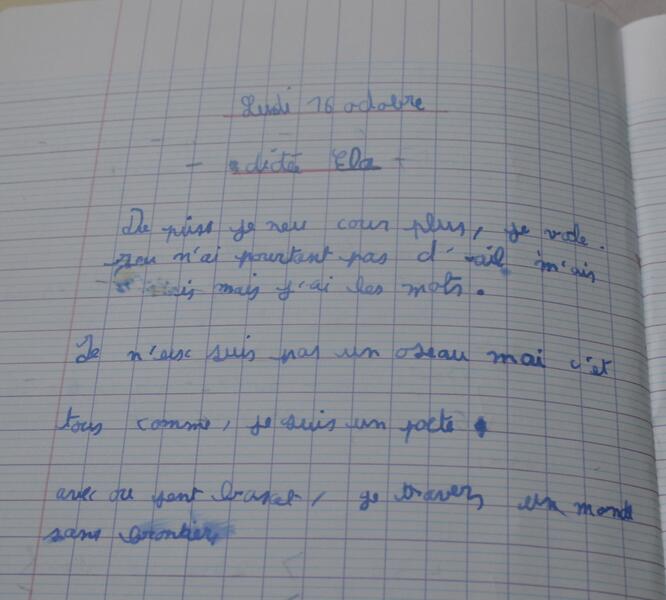 Lundi 16 octobre
- dictée Ela -
De puis je neu cour plus, je vole.
n'ai pourtant pas d' ail m'ais
mais j'ai les mots.
Je n'ai suis pas un oseau mai c'et
tous comme, je suis un poète
avec ou sent basket, je travers un monde
sans